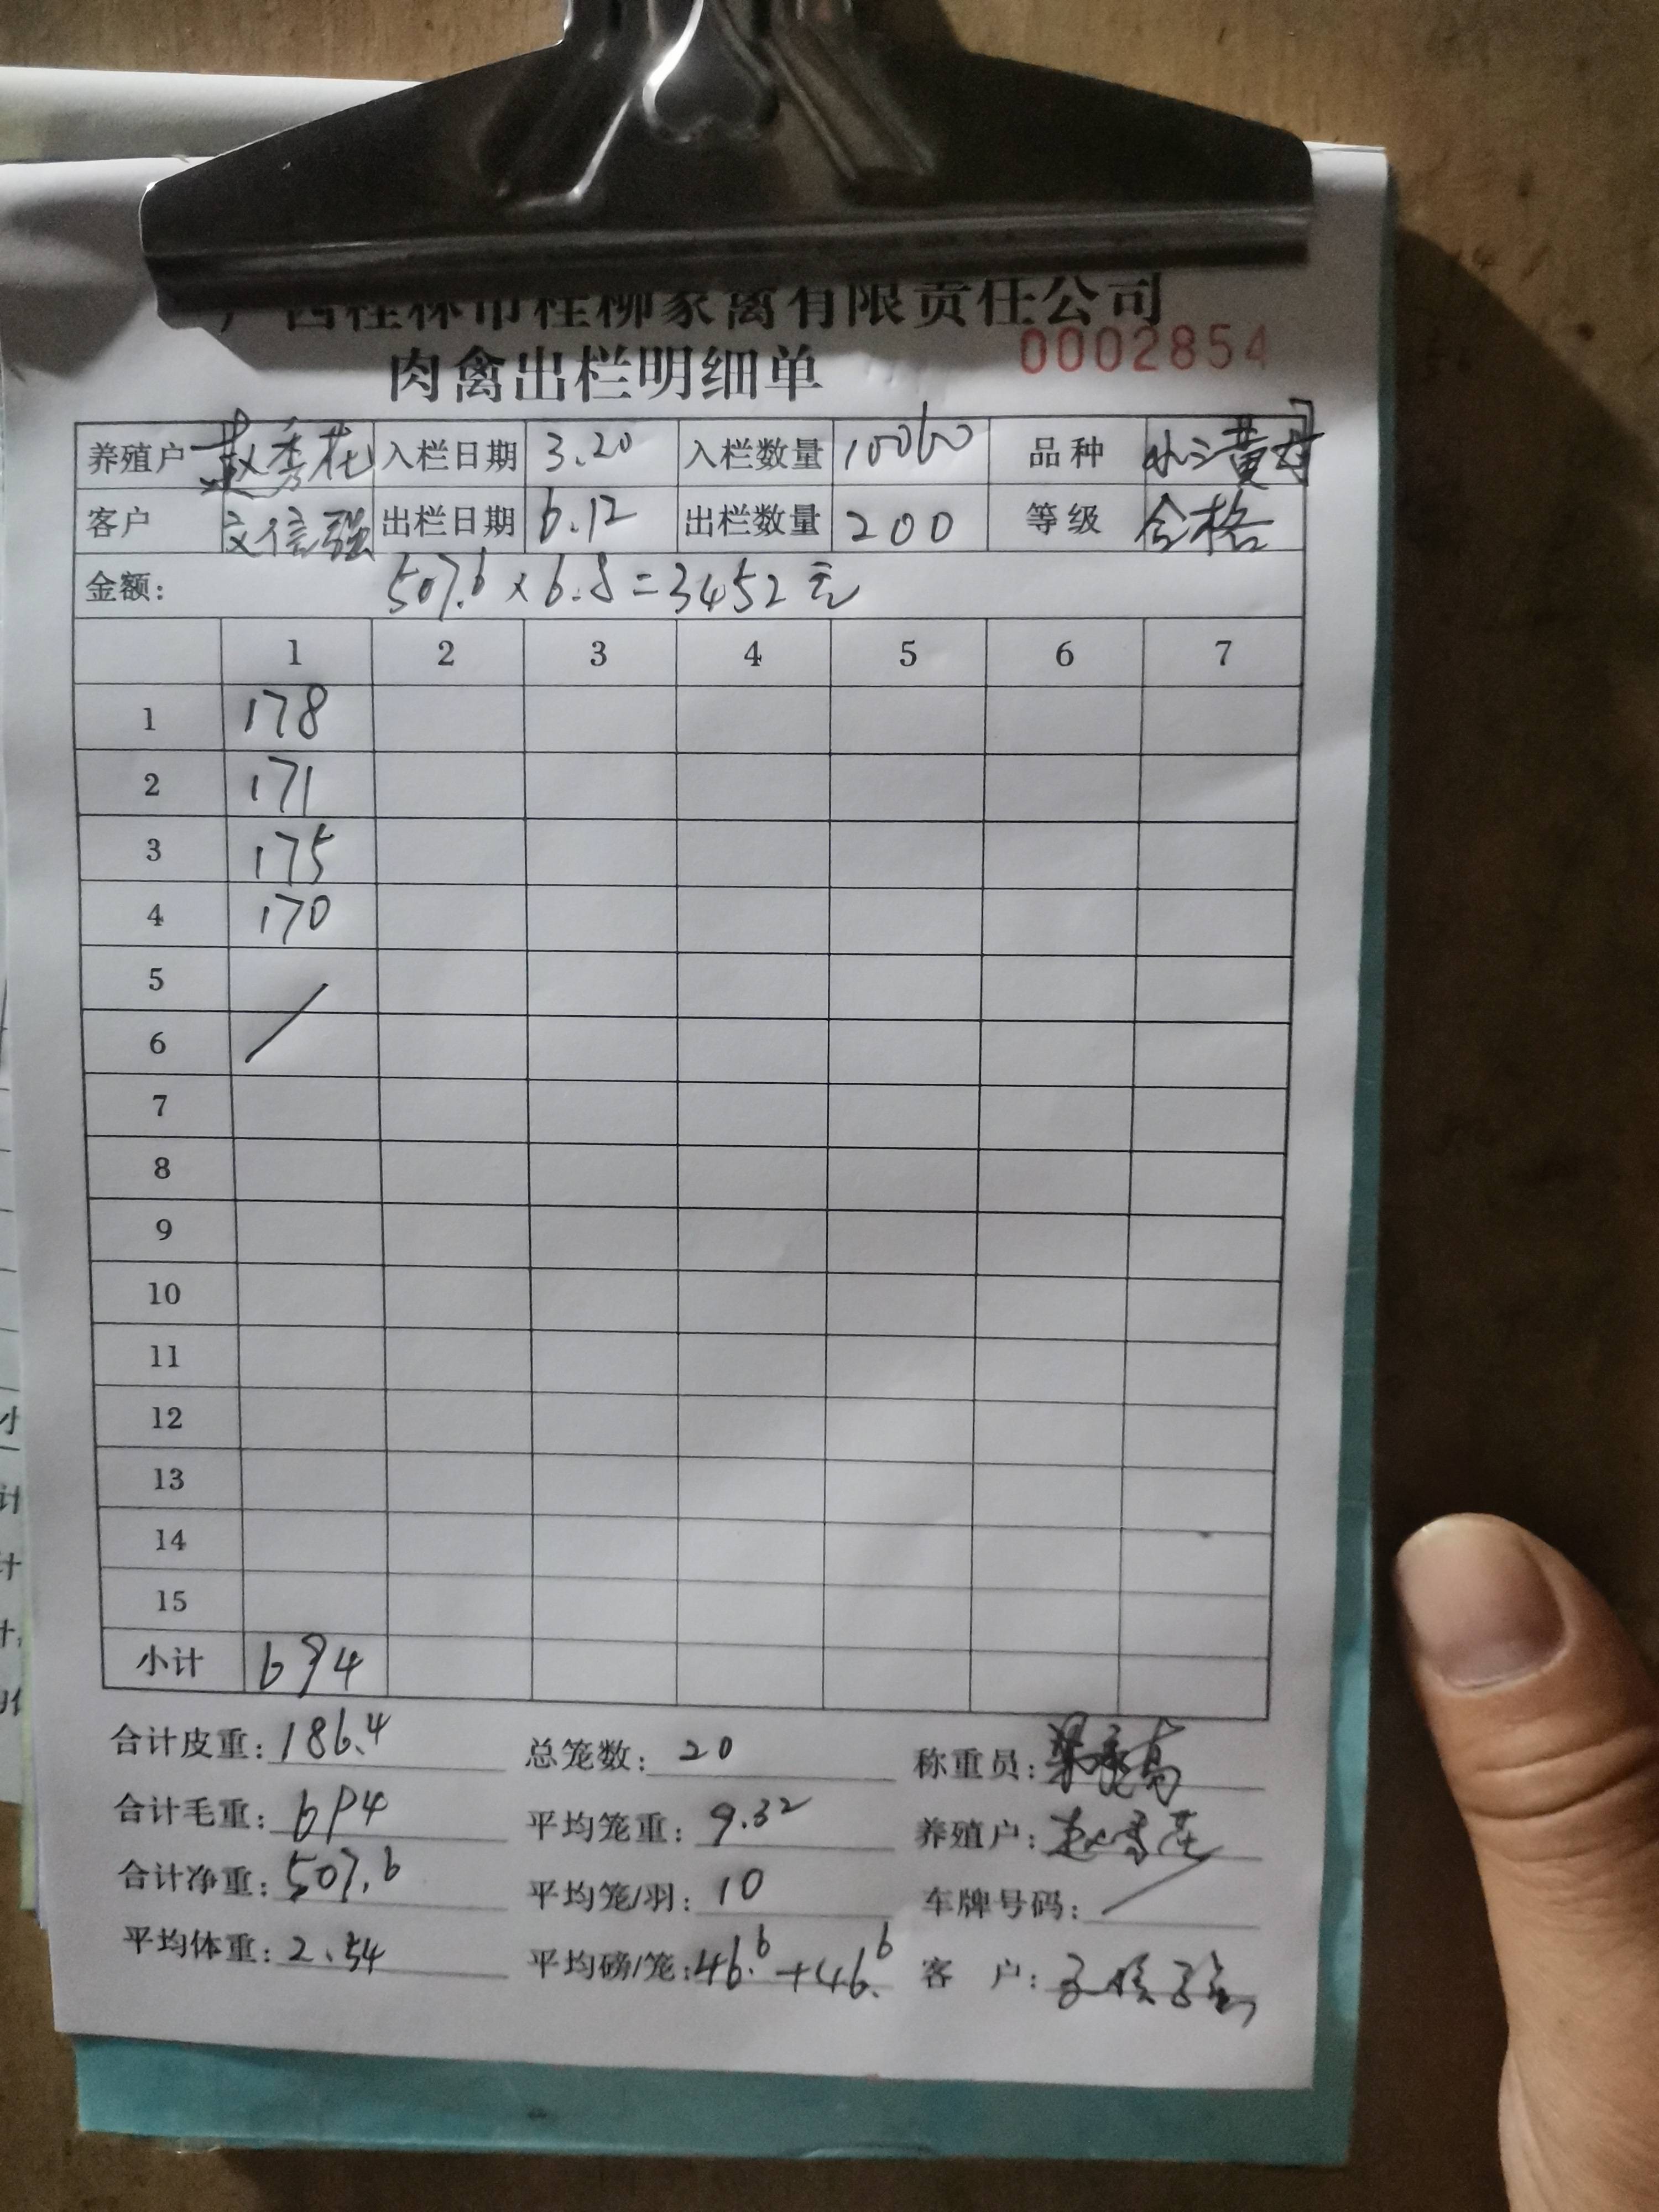 广西桂林市桂柳家禽有限责任公司
肉禽出栏明细单 0002854
养殖户 赵秀花 入栏日期 3.20 入栏数量 10060 品种 小三黄母
客户 文信强 出栏日期 6.12 出栏数量 200 等级 合格
金额: 507.6×6.8=3452元
1 2 3 4 5 6 7
1 178
2 171
3 175
4 170
5
6
7
8
9
10
11
12
13
14
15
小计 694
合计皮重: 186.4 总笼数: 20 称重员:
合计毛重: 694 平均笼重: 9.32 养殖户: 赵秀花
合计净重: 507.6 平均笼/羽: 10 车牌号码: /
平均体重: 2.54 平均磅/笼: 46.6+46.6 客 户: 文信强